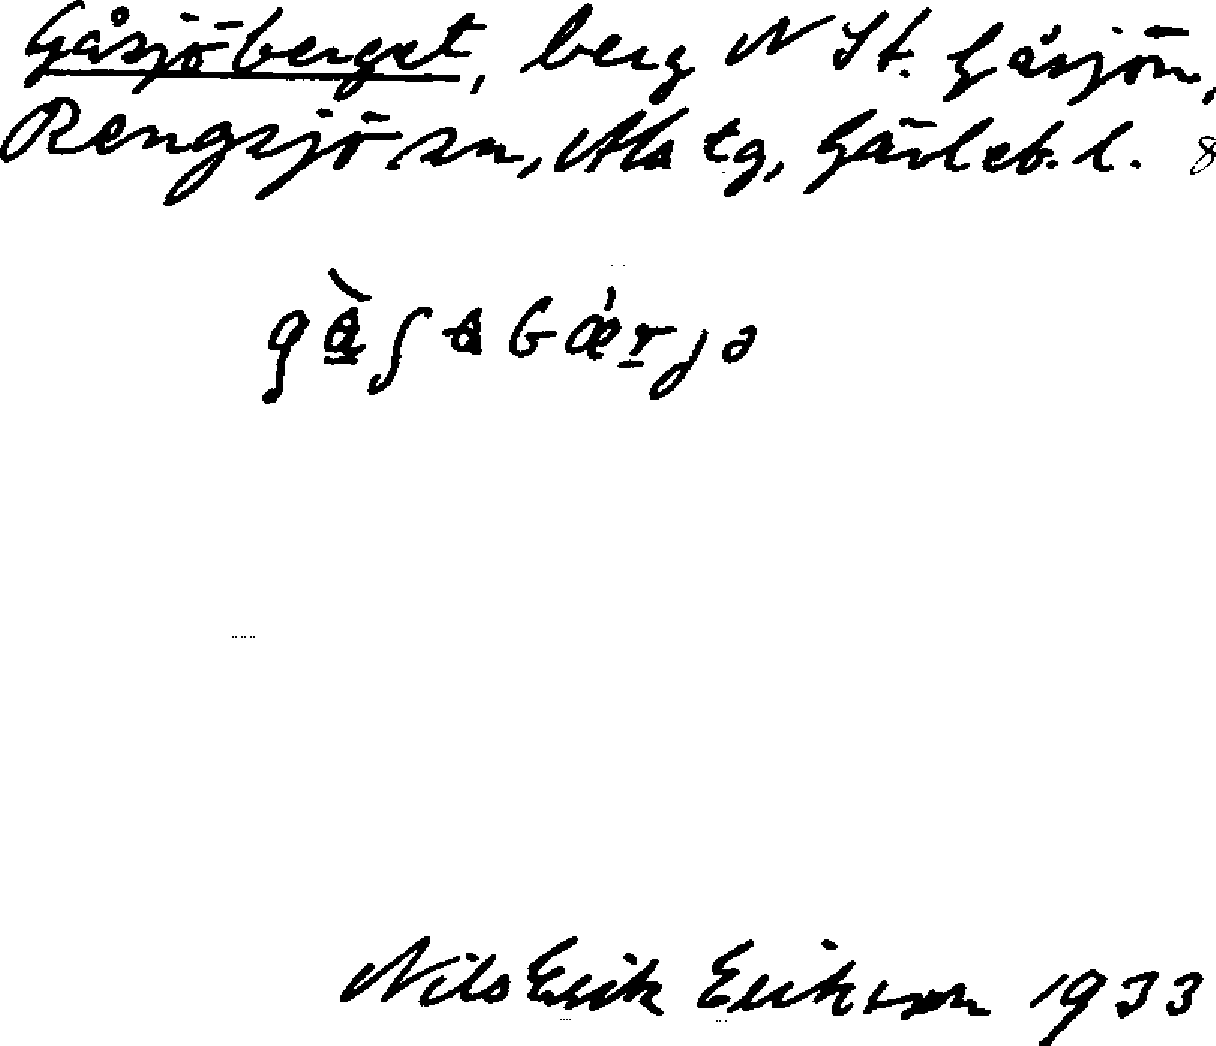 Gåsjöberget, berg N St. Gåsjön,
Rengsjö sn, Ala tg, Gävleb. l. 8
Nils Erik Erikson 1933